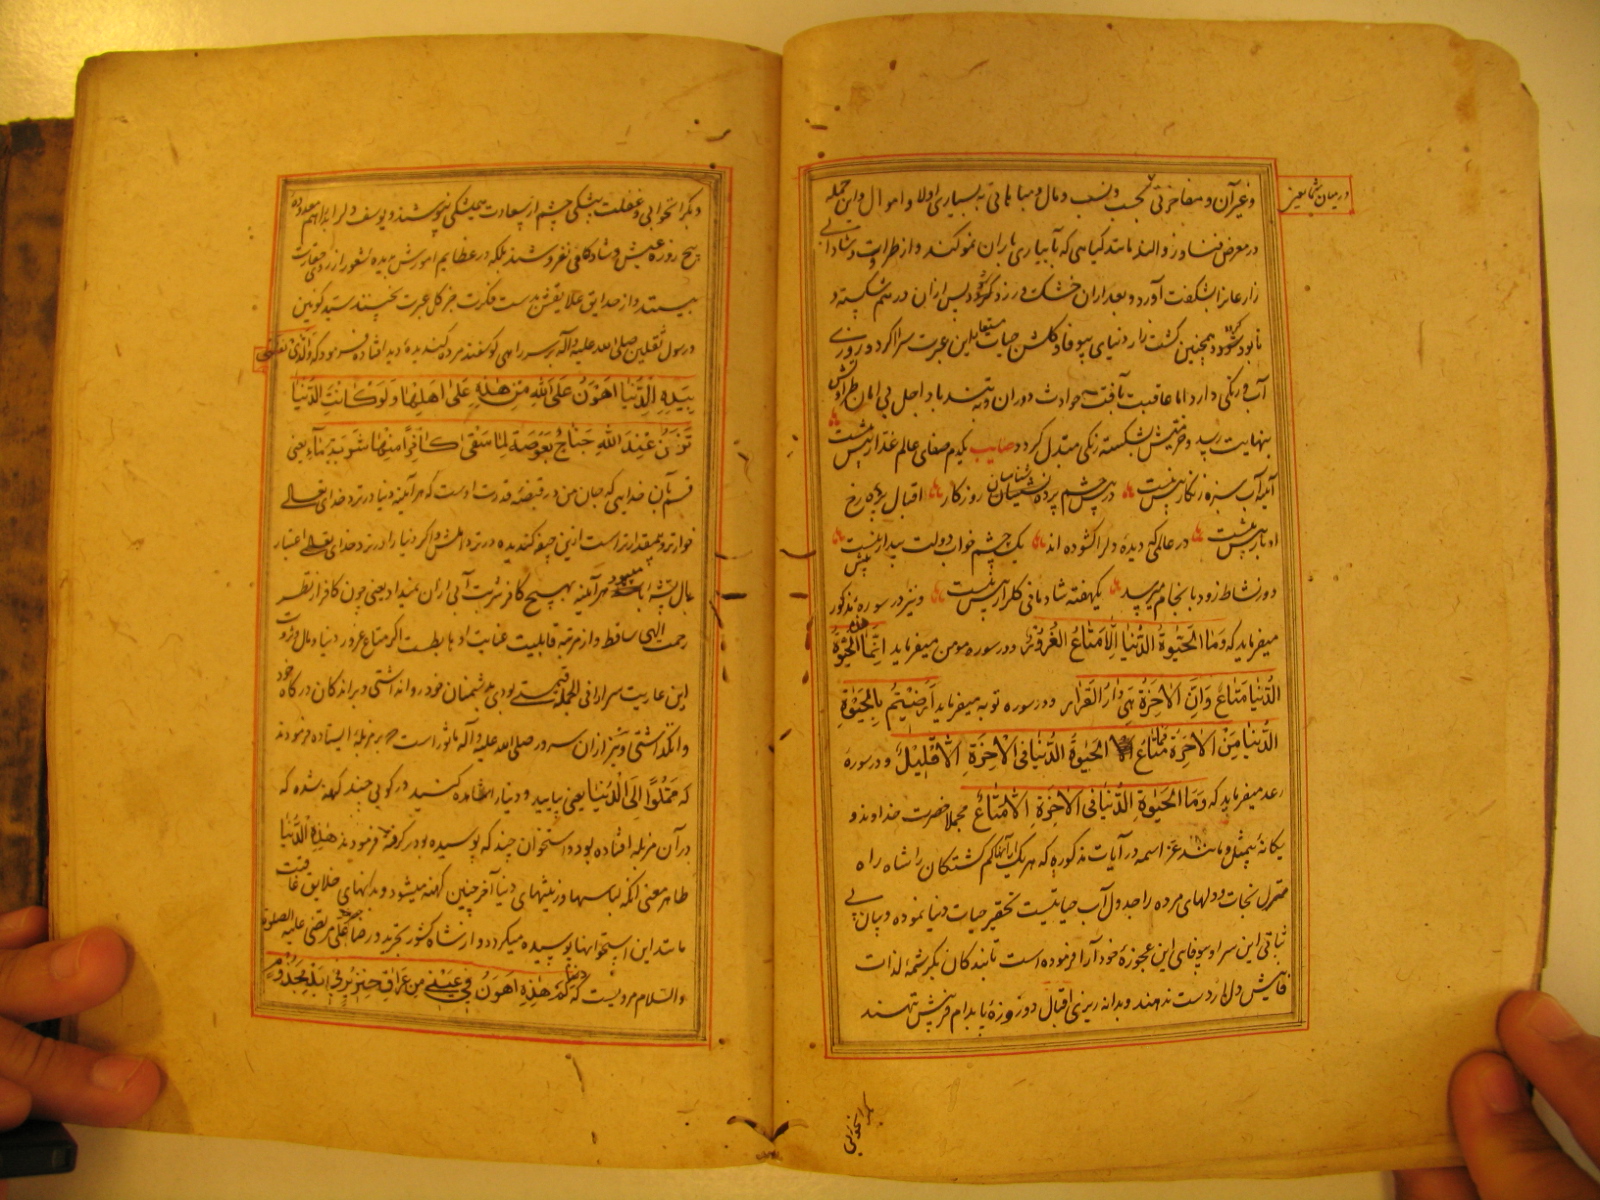 در میان شما یعنی
و غیر آن و مفاخرتی بحسب و نسب و مال و مباهاتی به بسیاری اولاد و اموال و این جمله
در معرض فنا و زوالند مانند گیاهی که بآبیاری باران نمو کند و از طراوت و شادابی
زارعانرا شگفت آورد و بعد از آن خشک و زرد گردد پس از آن در هم شکسته و
نابود شود همچنین کشت زار دنیای بیوفا و گلشن حیات مستعار این عبرت سرا اگر دو روزی
آب و رنگی دارد اما عاقبت بآفت حوادث دوران و تند باد اجل بی امان طراوتش
بنهایت رسد و خرمیش بشکسته رنگی مبدل گردد صایب یکدم صفای عالم غدار بیش نیست
آیینه آب سبزه زنگار بیش نیست در چشم پرده شناسان روزگار اقبال پرده رخ
ادبار بیش نیست در عالمی که دیده دلرا گشوده اند یک چشم خواب دولت بیدار بیش نیست
دور نشاط زود بانجام میرسد یکهفته شادمانی گلزار بیش نیست و نیز در سوره مذکور
میفرماید که وَمَا الْحَیٰوةُ الدُّنْیَا اِلَّا مَتَاعُ الْغُرُورِ و در سوره مومن میفرماید اِنَّمَا هٰذِهِ الْحَیٰوةُ
الدُّنْیَا مَتَاعٌ وَاِنَّ الْاٰخِرَةَ هِیَ دَارُ الْقَرَارِ و در سوره توبه میفرماید اَرَضِیْتُمْ بِالْحَیٰوةِ
الدُّنْیَا مِنَ الْاٰخِرَةِ فَمَا مَتَاعُ الْحَیٰوةِ الدُّنْیَا فِی الْاٰخِرَةِ اِلَّا قَلِیْلٌ و در سوره
رعد میفرماید که وَمَا الْحَیٰوةُ الدُّنْیَا فِی الْاٰخِرَةِ اِلَّا مَتَاعٌ مجملا حضرت خداوند و
یگانه بیمثل و مانند عز اسمه در آیات مذکوره که هر یک از آنها گم گشتگان را شاه راه
سر منزل نجات و دلهای مرده را جدول آب حیاتیست تحقیر حیات دنیا نموده و بیان بی
ثباتی این سرا و بیوفایی این عجوزه خود آرا فرموده است تا بندگان بکرشمه لذات
فانیش دل از دست ندهند و بدانه ریزی اقبال دو روزه پا بدام فریبش ننهند
و بگرانخوابی و غفلت بتنگی چشم از سعادت همیشگی نپوشند و یوسف دلرا بدراهم معدوده
پنج روزه عیش و شادکامی نفروشند بلکه در عظایم امورش بدیده شعور از روی حقارت
بینند و از حدایق علایقش بدست فکرت جز گل عبرت نچینند سید کونین
و رسول ثقلین صلی الله علیه و آله بر سر راهی گوسفند مرده گندیده دید افتاده فرمود که وَالَّذِی نَفْسِی
بِیَدِهِ الدُّنْیَا اَهْوَنُ عَلَی اللهِ مِنْ هٰذِهِ عَلٰی اَهْلِهَا وَلَوْ کَانَتِ الدُّنْیَا
تَزِنُ عِنْدَ اللهِ جَنَاحَ بَعُوضَةٍ لَمَا سَقٰی کَافِرًا مِنْهَا شَرْبَةَ مَاءٍ یعنی
قسم بآن خدایی که جان من در قبضه قدرت اوست که هر آینه دنیا در نزد خدای تعالی
خوارتر و بیمقدارتر است ازین جیفه گندیده در نزد اهلش و اگر دنیا را در نزد خدای تعالی اعتبار
بال پشه میبود هر آینه بهیچ کافر شربت آبی از آن نمیداد یعنی چون کافر از نظر
رحمت الهی ساقط و از مرتبه قابلیت عنایت او هابط است اگر متاع غرور دنیا و مال و ثروت
این عاریت سرا را فی الجمله قیمتی بودی بدشمنان خود روا نداشتی و بر راندگان درگاه خود
وانگذاشتی و نیز از آن سرور صلی الله علیه و آله مأثور است که بر مزبله ایستاده فرمودند
که هَلُمُّوا اِلَی الدُّنْیَا یعنی بیایید و دنیا را مشاهده کنید در کویی چند کهنه شده که
در آن مزبله افتاده بود و استخوان چند که پوسیده بود بر گرفته فرمودند هٰذِهِ الدُّنْیَا
ظاهر معنی آنکه لباسها و زینتهای دنیا آخر چنین کهنه میشود و بدنهای خلایق عاقبت
مانند این استخوانها پوسیده میگردد و از شاه کشور تجرید و رضا علی مرتضی علیه الصلوة
و السلام مرویست که دنیاکم هٰذِهِ اَهْوَنُ فِی عَیْنِی مِنْ عُرَاقِ خِنْزِیرٍ فِی یَدِ مَجْذُومٍ
بگرانخوابی